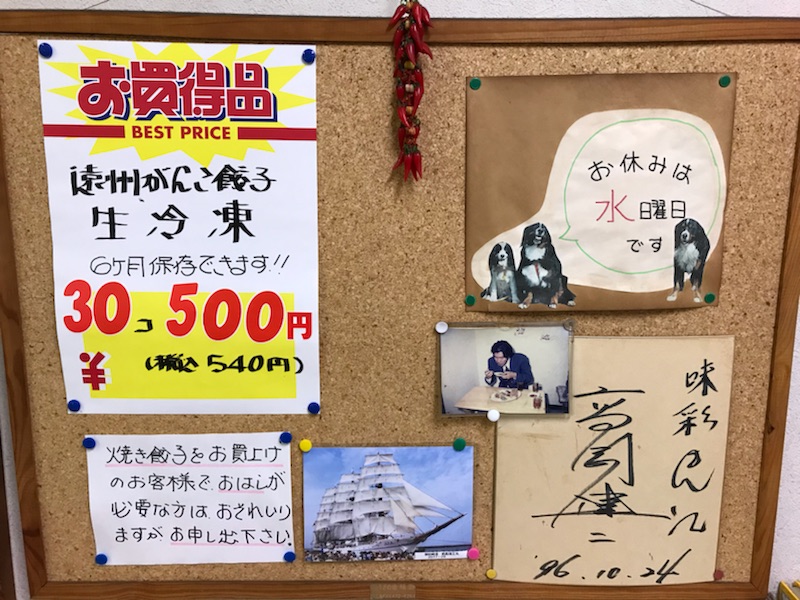 お買得品
BEST PRICE
遠州がんこ餃子
生冷凍
6ケ月保存できます!!
30コ 500円
¥ (税込540円)
焼き餃子をお買上げ
のお客様で、おはしが
必要な方は、おそれいり
ますが、お申し出下さい。
お休みは
水曜日
です
味彩
健二
'96.10.24